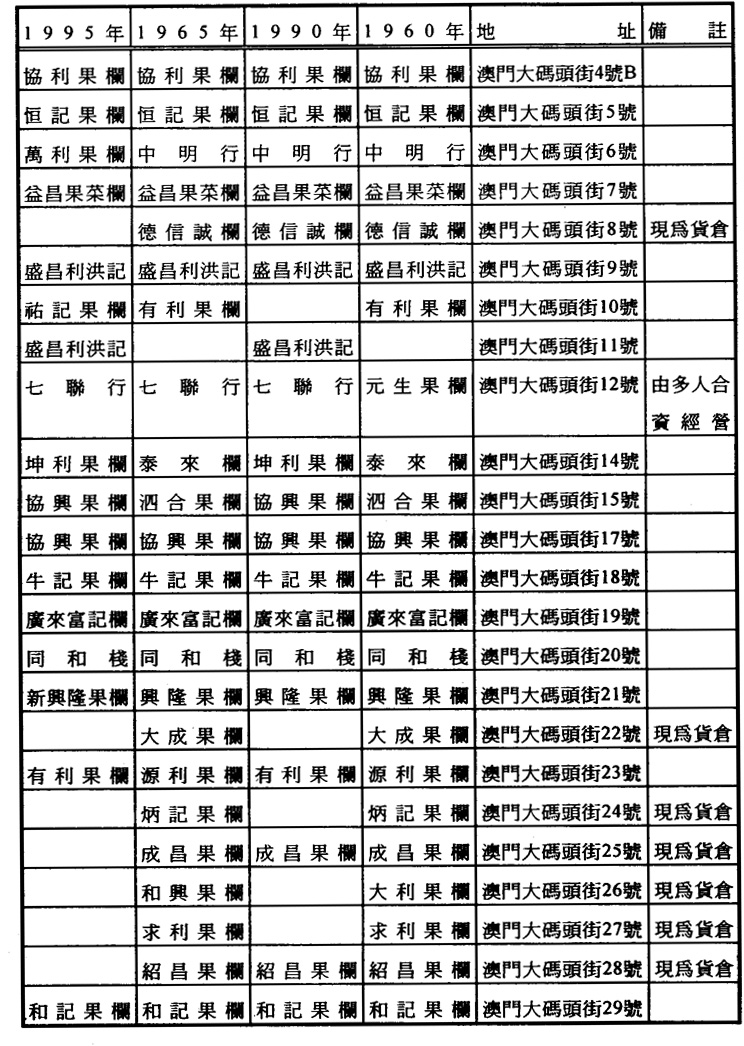 1995年 1965年 1990年 1960年 地址 備註
協利果欄 協利果欄 協利果欄 協利果欄 澳門大碼頭街4號B
恒記果欄 恒記果欄 恒記果欄 恒記果欄 澳門大碼頭街5號
萬利果欄 中明行 中明行 中明行 澳門大碼頭街6號
益昌果菜欄 益昌果菜欄 益昌果菜欄 益昌果菜欄 澳門大碼頭街7號
德信誠欄 德信誠欄 德信誠欄 澳門大碼頭街8號 現爲貨倉
盛昌利洪記 盛昌利洪記 盛昌利洪記 盛昌利洪記 澳門大碼頭街9號
祐記果欄 有利果欄 有利果欄 澳門大碼頭街10號
盛昌利洪記 盛昌利洪記 澳門大碼頭街11號
七聯行 七聯行 七聯行 元生果欄 澳門大碼頭街12號 由多人合
資經營
坤利果欄 泰來欄 坤利果欄 泰來欄 澳門大碼頭街14號
協興果欄 泗合果欄 協興果欄 泗合果欄 澳門大碼頭街15號
協興果欄 協興果欄 協興果欄 協興果欄 澳門大碼頭街17號
牛記果欄 牛記果欄 牛記果欄 牛記果欄 澳門大碼頭街18號
廣來富記欄 廣來富記欄 廣來富記欄 廣來富記欄 澳門大碼頭街19號
同和棧 同和棧 同和棧 同和棧 澳門大碼頭街20號
新興隆果欄 興隆果欄 興隆果欄 興隆果欄 澳門大碼頭街21號
大成果欄 大成果欄 澳門大碼頭街22號 現爲貨倉
有利果欄 源利果欄 有利果欄 源利果欄 澳門大碼頭街23號
炳記果欄 炳記果欄 澳門大碼頭街24號 現爲貨倉
成昌果欄 成昌果欄 成昌果欄 澳門大碼頭街25號 現爲貨倉
和興果欄 大利果欄 澳門大碼頭街26號 現爲貨倉
求利果欄 求利果欄 澳門大碼頭街27號 現爲貨倉
紹昌果欄 紹昌果欄 紹昌果欄 澳門大碼頭街28號 現爲貨倉
和記果欄 和記果欄 和記果欄 和記果欄 澳門大碼頭街29號